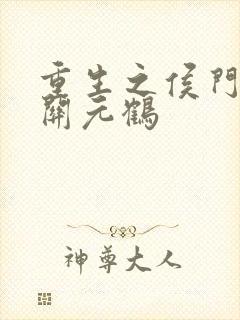 重生之侯門
開元鶴
神尊大人